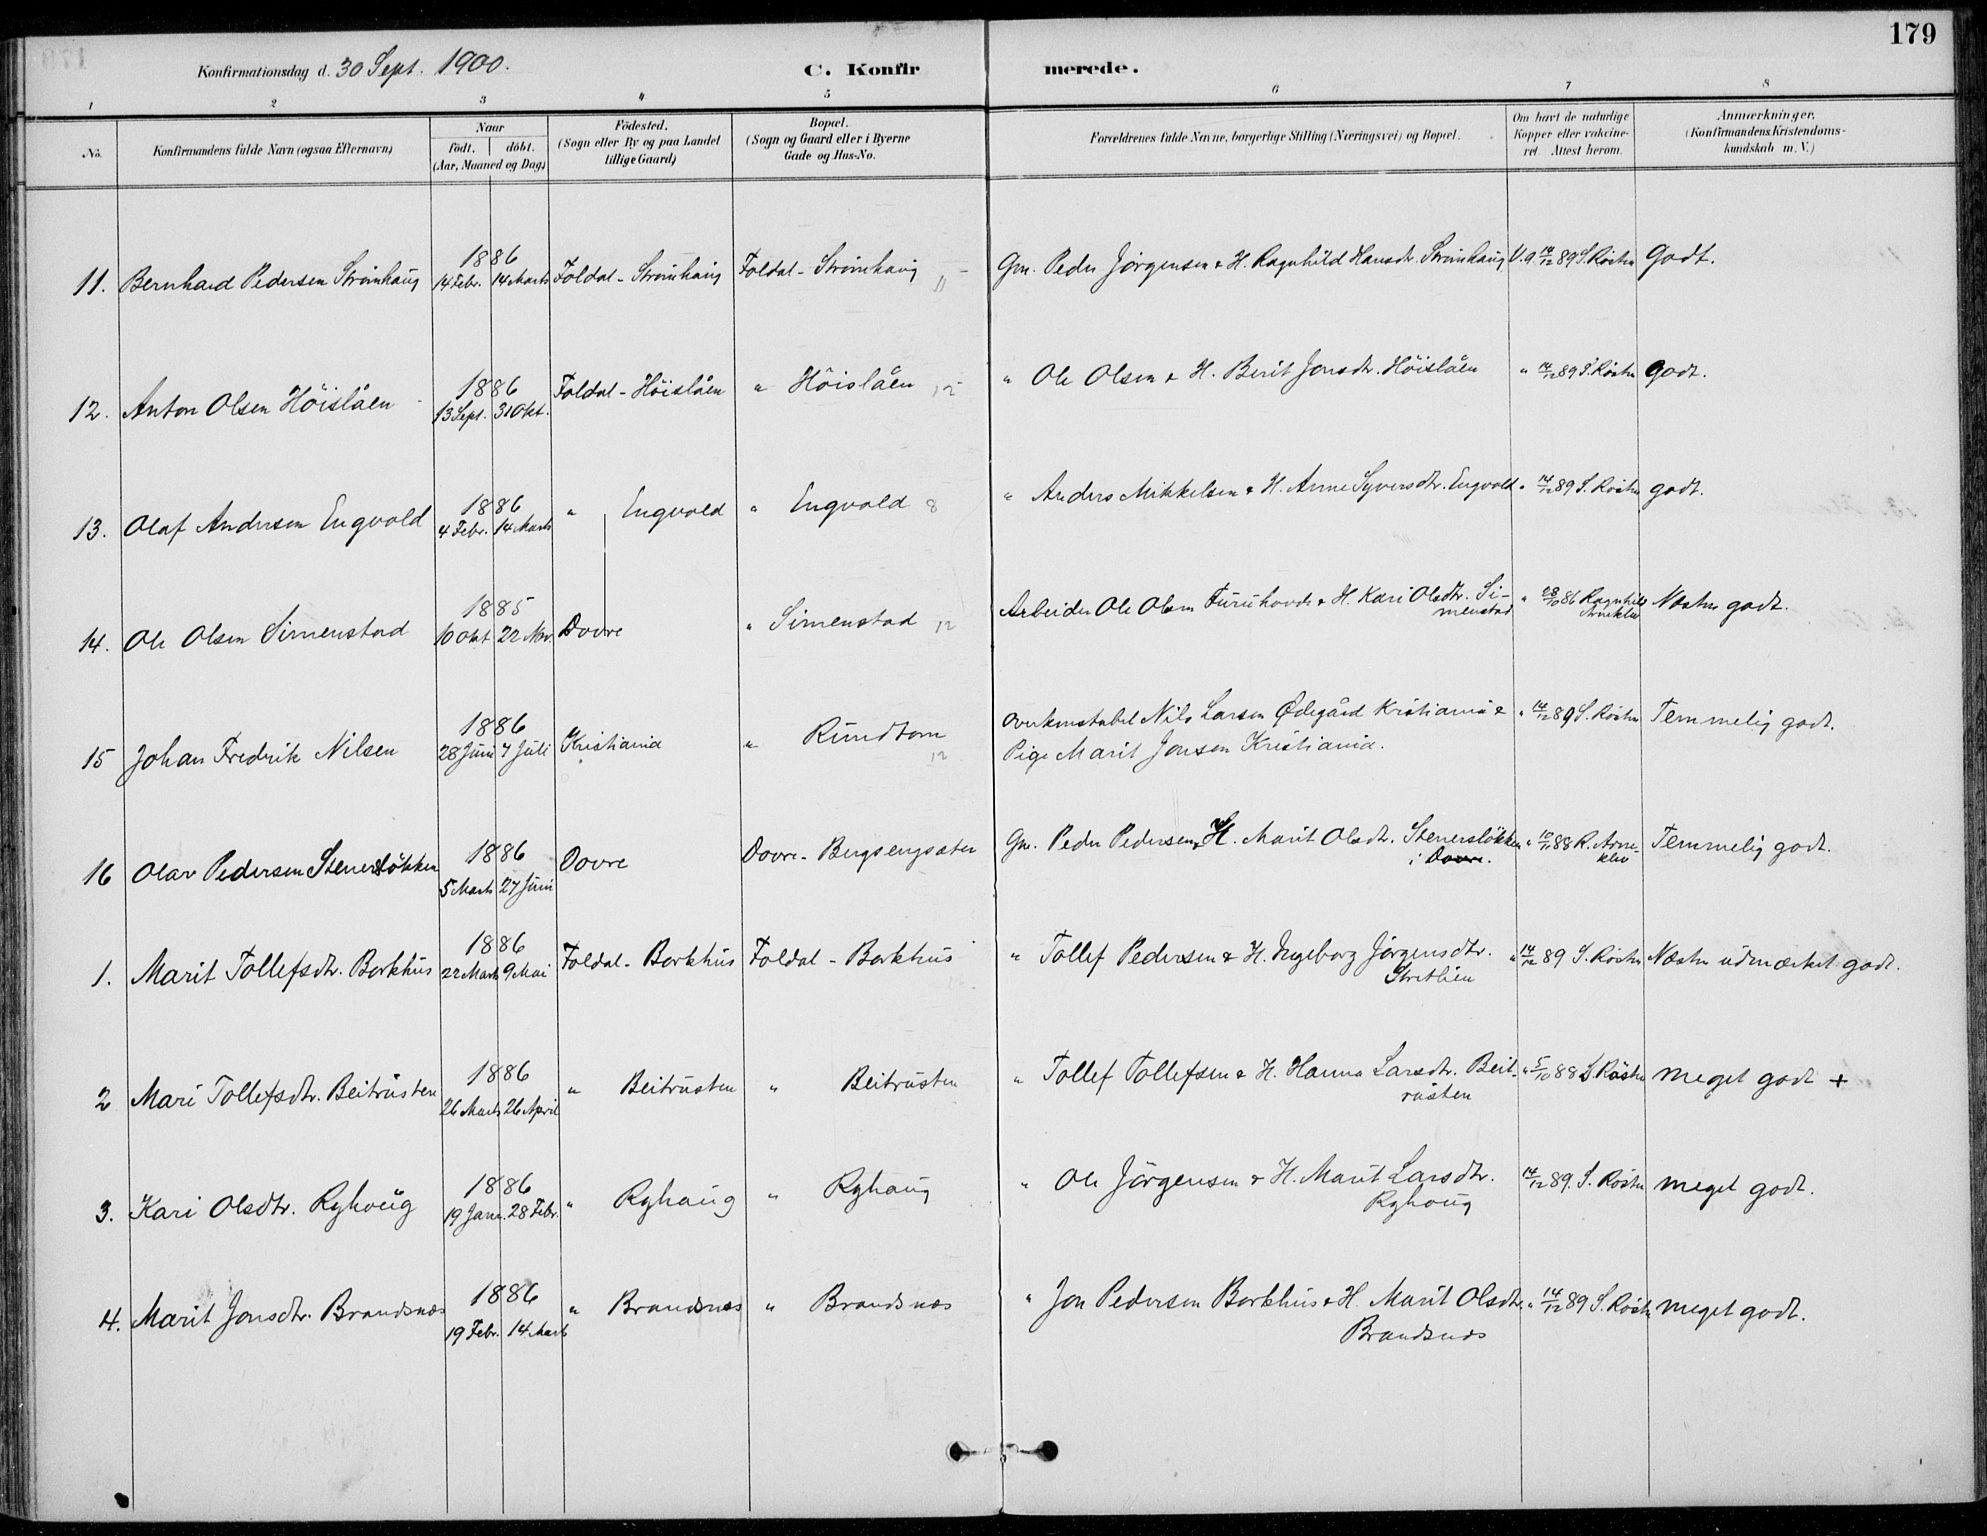 179
Konfirmationsdag d. 30 Sept. 1900. C. Konfirmerede.
1 2 3 4 5 6 7 8
No. Konfirmandens fulde Navn (ogsaa Efternavn) Naar født. døbt. (Aar, Maaned og Dag) Fødested. (Sogn eller By og paa Landet tillige Gaard) Bopæl. (Sogn og Gaard eller i Byerne Gade og Hus-No. Forældrenes fulde Navne, borgerlige Stilling (Næringsvei) og Bopæl. Om havt de naturlige Kopper eller vakcineret Attest herom. Anmærkninger. (Konfirmandens Kristendomskundskab m. V.)
11. Bernhard Pedersen Strømhaug 1886 14 Febr. 14 Marts Foldal - Strømhaug Foldal - Strømhaug 11 Gm. Peder Jørgensen & H. Ragnhild Hansdr. Strømhaug V.a. 14/12 89 S. Røsten Godt.
12. Anton Olsen Höislåen 1886 13 Sept. 31 Okt. Foldal - Höislåen " Höislåen 12 " Ole Olsen & H. Berit Jonsdr. Höislåen " 14/12 89 S. Røsten godt.
13. Olaf Andersen Engvold 1886 4 Febr. 14 Marts " Engvold " Engvold 8 " Anders Mikkelsen & H. Anne Syversdtr. Engvold " 14/12 89 S. Røsten godt.
14. Ole Olsen Simenstad 1885 10 Okt 22 Nov. Dovre " Simenstad 12 Arbeider Ole Olsen Furuhovde & H. Kari Olsdtr. Simenstad " 28/10 86 Ragnhild Arneklev Næsten godt.
15 Johan Fredrik Nilsen 1886 28 Juni 7 Juli Kristiania " Rundtom 12 Overkonstabel Nils Larsen Ødegård Kristiania & " 14/12 89 S. Røsten Temmelig godt.
Pige Marit Jonsen Kristiania.
16 Olav Pedersen Stenersløkken 1886 5 Marts 27 Juni Dovre Dovre - Bergsengsæter Gm. Peder Pedersen & H. Marit Olsdtr. Stenersløkken i Dovre. " 10/11 88 R. Arneklev Temmelig godt.
1. Marit Tollefsdtr. Borkhus 1886 22 Marts 9 Mai Foldal - Borkhus Foldal - Borkhus " Tollef Pedersen & H. Ingeborg Jørgensdtr. Stretlien " 14/12 89 S. Røsten Næsten udmærket godt.
2 Mari Tollefsdtr. Beitrusten 1886 26 Marts 26 April " Beitrusten " Beitrusten " Tollef Tollefsen & H. Hanna Larsdtr. Beitrusten " 5/10 88 S. Røsten meget godt +
3. Kari Olsdtr. Ryhoug 1886 19 Janr. 28 Febr. " Ryhaug " Ryhaug " Ole Jörgensen & H. Marit Larsdtr. Ryhoug 14/12 89. S. Røsten meget godt.
4. Marit Jonsdtr. Brandsnæs 1886 19 Febr. 14 Marts " Brandsnæs " Brandsnæs " Jon Pedersen Borkhus & H. Marit Olsdtr. Brandsnæs " 14/12 89 S. Røsten meget godt.